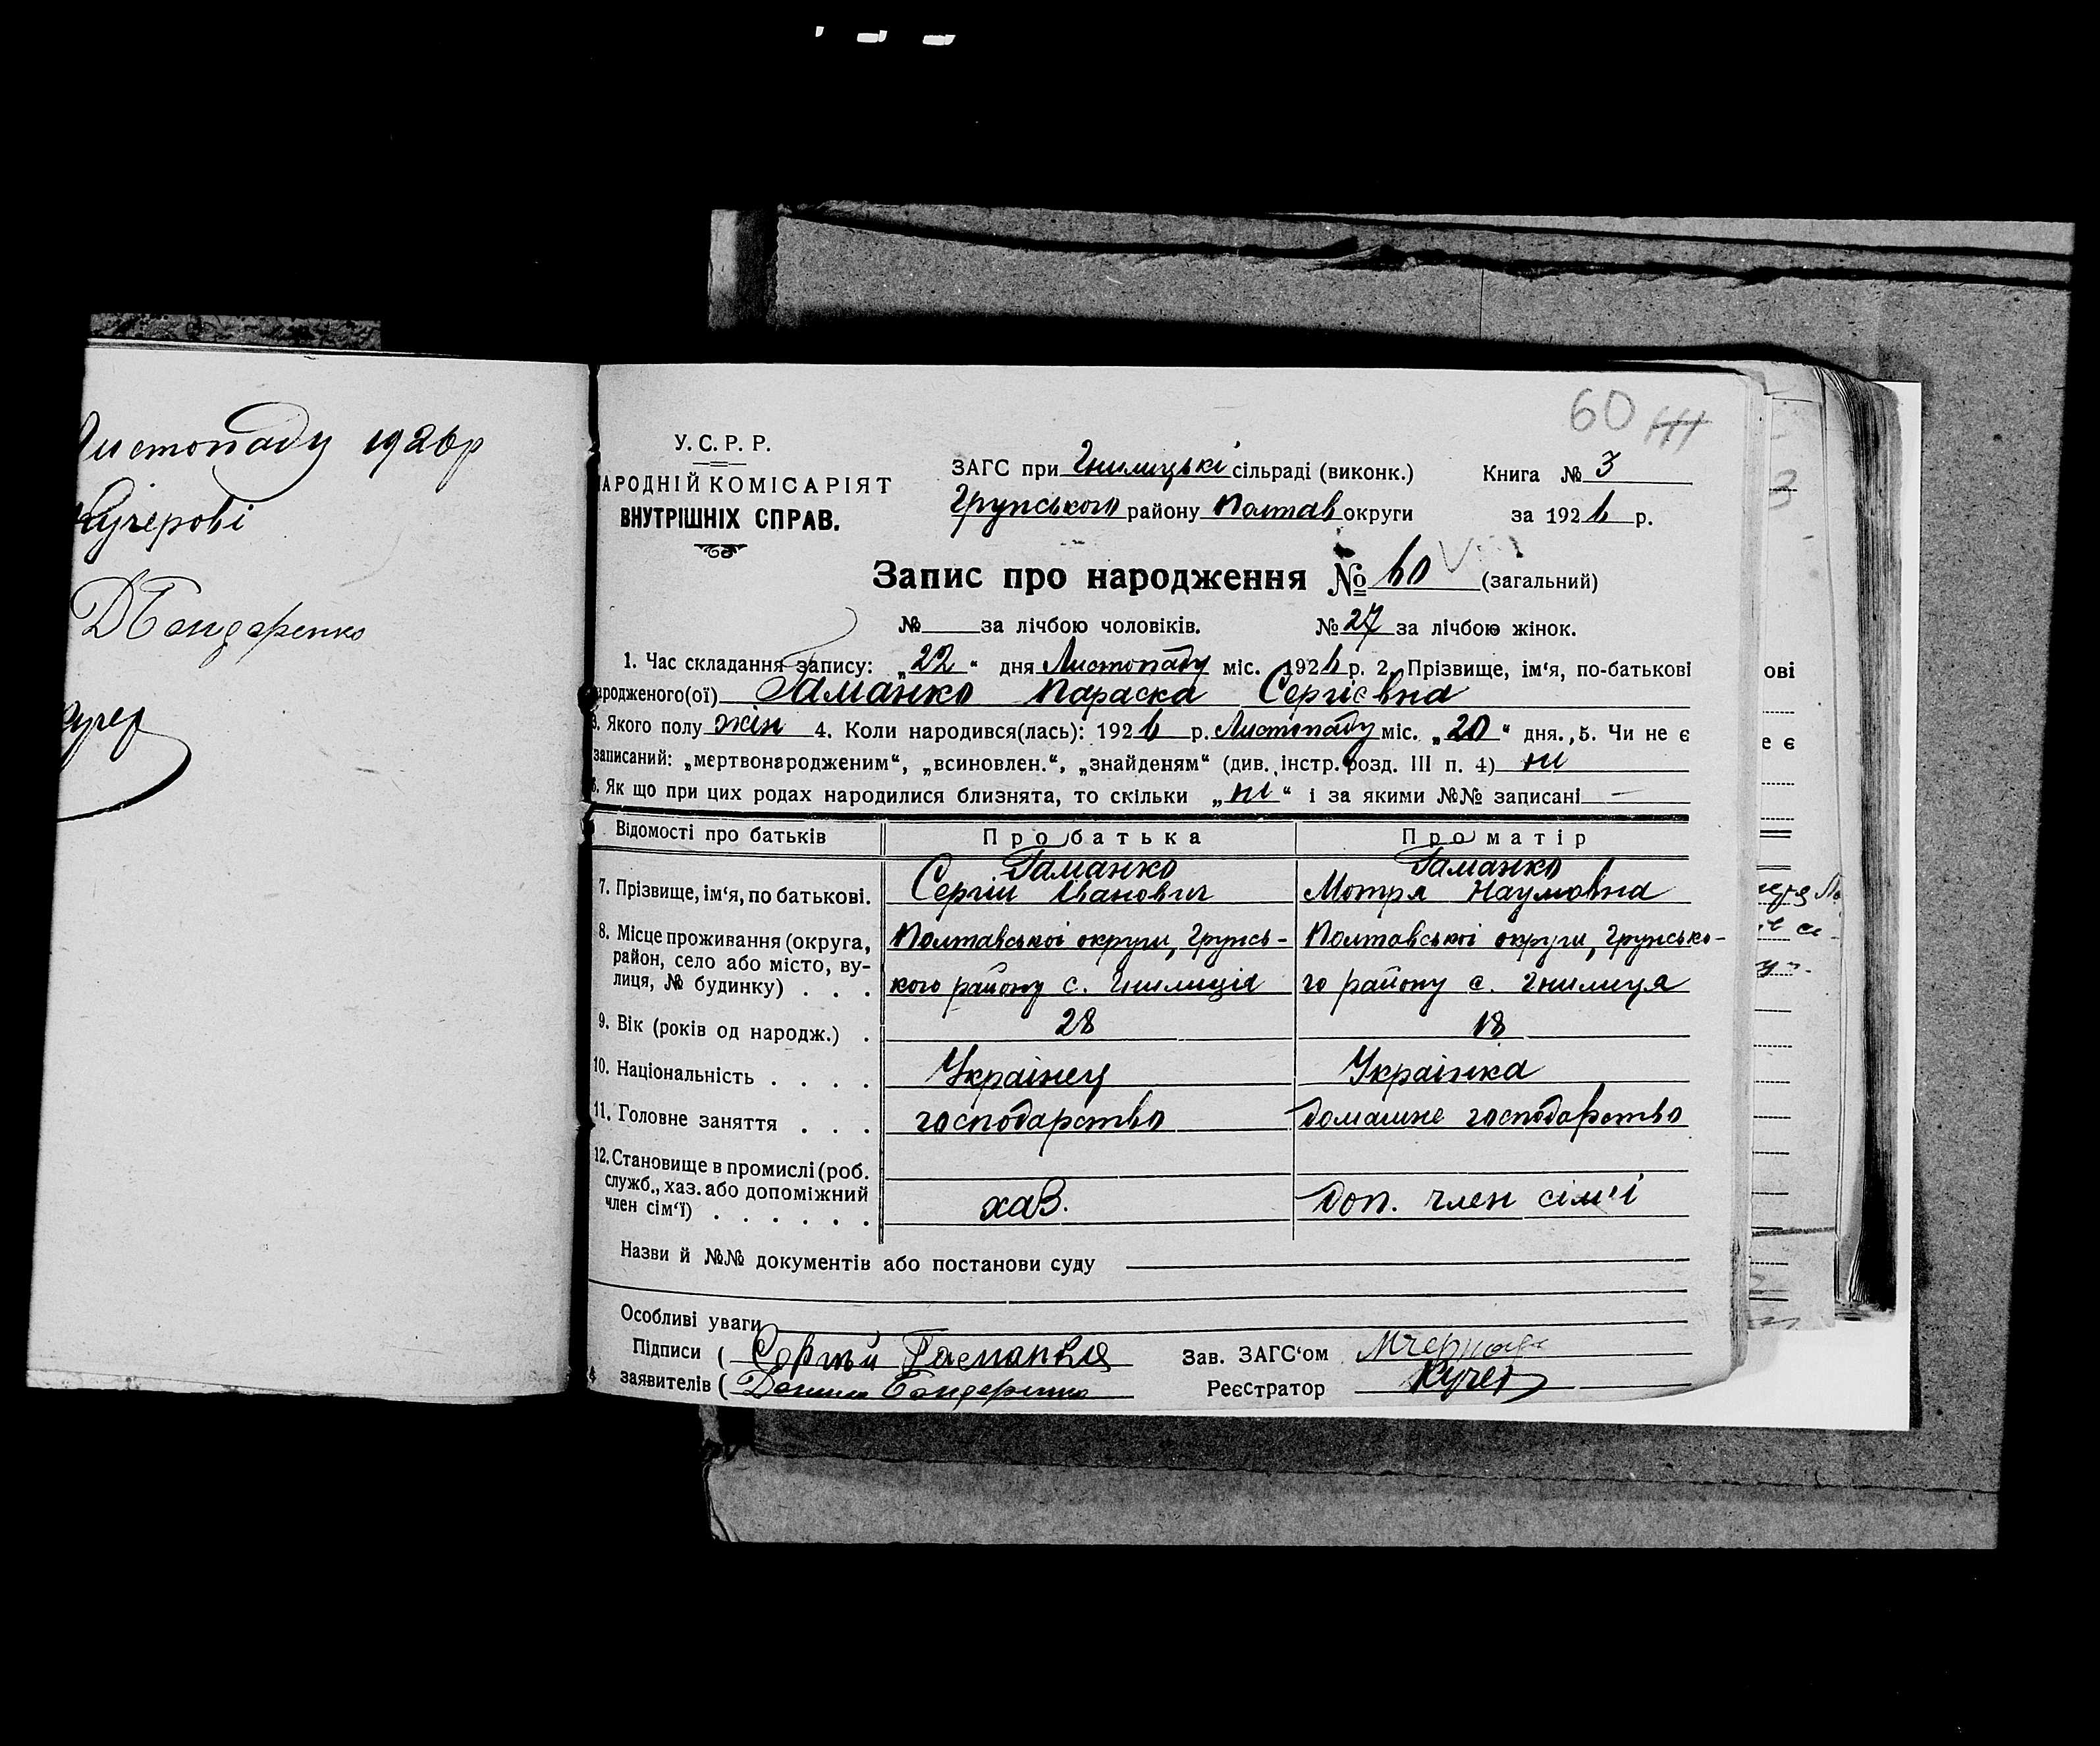 Листопаду 1926р
Кучерові
ДБондаренко
Кучер
60
У. С. Р. Р.
НАРОДНІЙ КОМІСАРІЯТ
ВНУТРІШНІХ СПРАВ.
ЗАГС при Гнилицькі сільраді (виконк.) Книга № 3
Грунського району Полтав округи за 1926 р.
Запис про народження № 60 (загальний)
№ за лічбою чоловіків. № 27 за лічбою жінок.
1. Час складання запису: „22“ дня Листопаду міс. 1926 р. 2. Прізвище, ім‘я, по-батькові
народженого(ої) Гаманко Параска Сергієвна
3. Якого полу жін 4. Коли народився(лась): 1926 р. Листопаду міс. „20“ дня. 5. Чи не є
записаний: „мертвонародженим“, „всиновлен.“, „знайденям“ (див. інстр. розд. III п. 4) ні
6. Як що при цих родах народилися близнята, то скільки „ні“ і за якими №№ записані —
Відомості про батьків Про батька Про матір
Гаманко Гаманко
7. Прізвище, ім‘я, по батькові. Сергій Іванович Мотря Наумовна
8. Місце проживання (округа, Полтавськоі округи, Грунсь- Полтавськоі округи, Грунсько-
район, село або місто, ву-
лиця, № будинку) . . . кого району с. Гнилиція го району с. Гнилиця
9. Вік (років од народж.) . 28 18
10. Національність . . . . Украінец Украінка
11. Головне заняття . . . господарство домашне господарство
12. Становище в промислі (роб.
служб., хаз. або допоміжний хаз. доп. член сім‘і
член сім‘ї) . . . . . .
Назви й №№ документів або постанови суду
Особливі уваги
Підписи ( Сергій Зав. ЗАГС‘ом
заявителів ( Данило Бондаренко Реєстратор Кучер
ові
е є